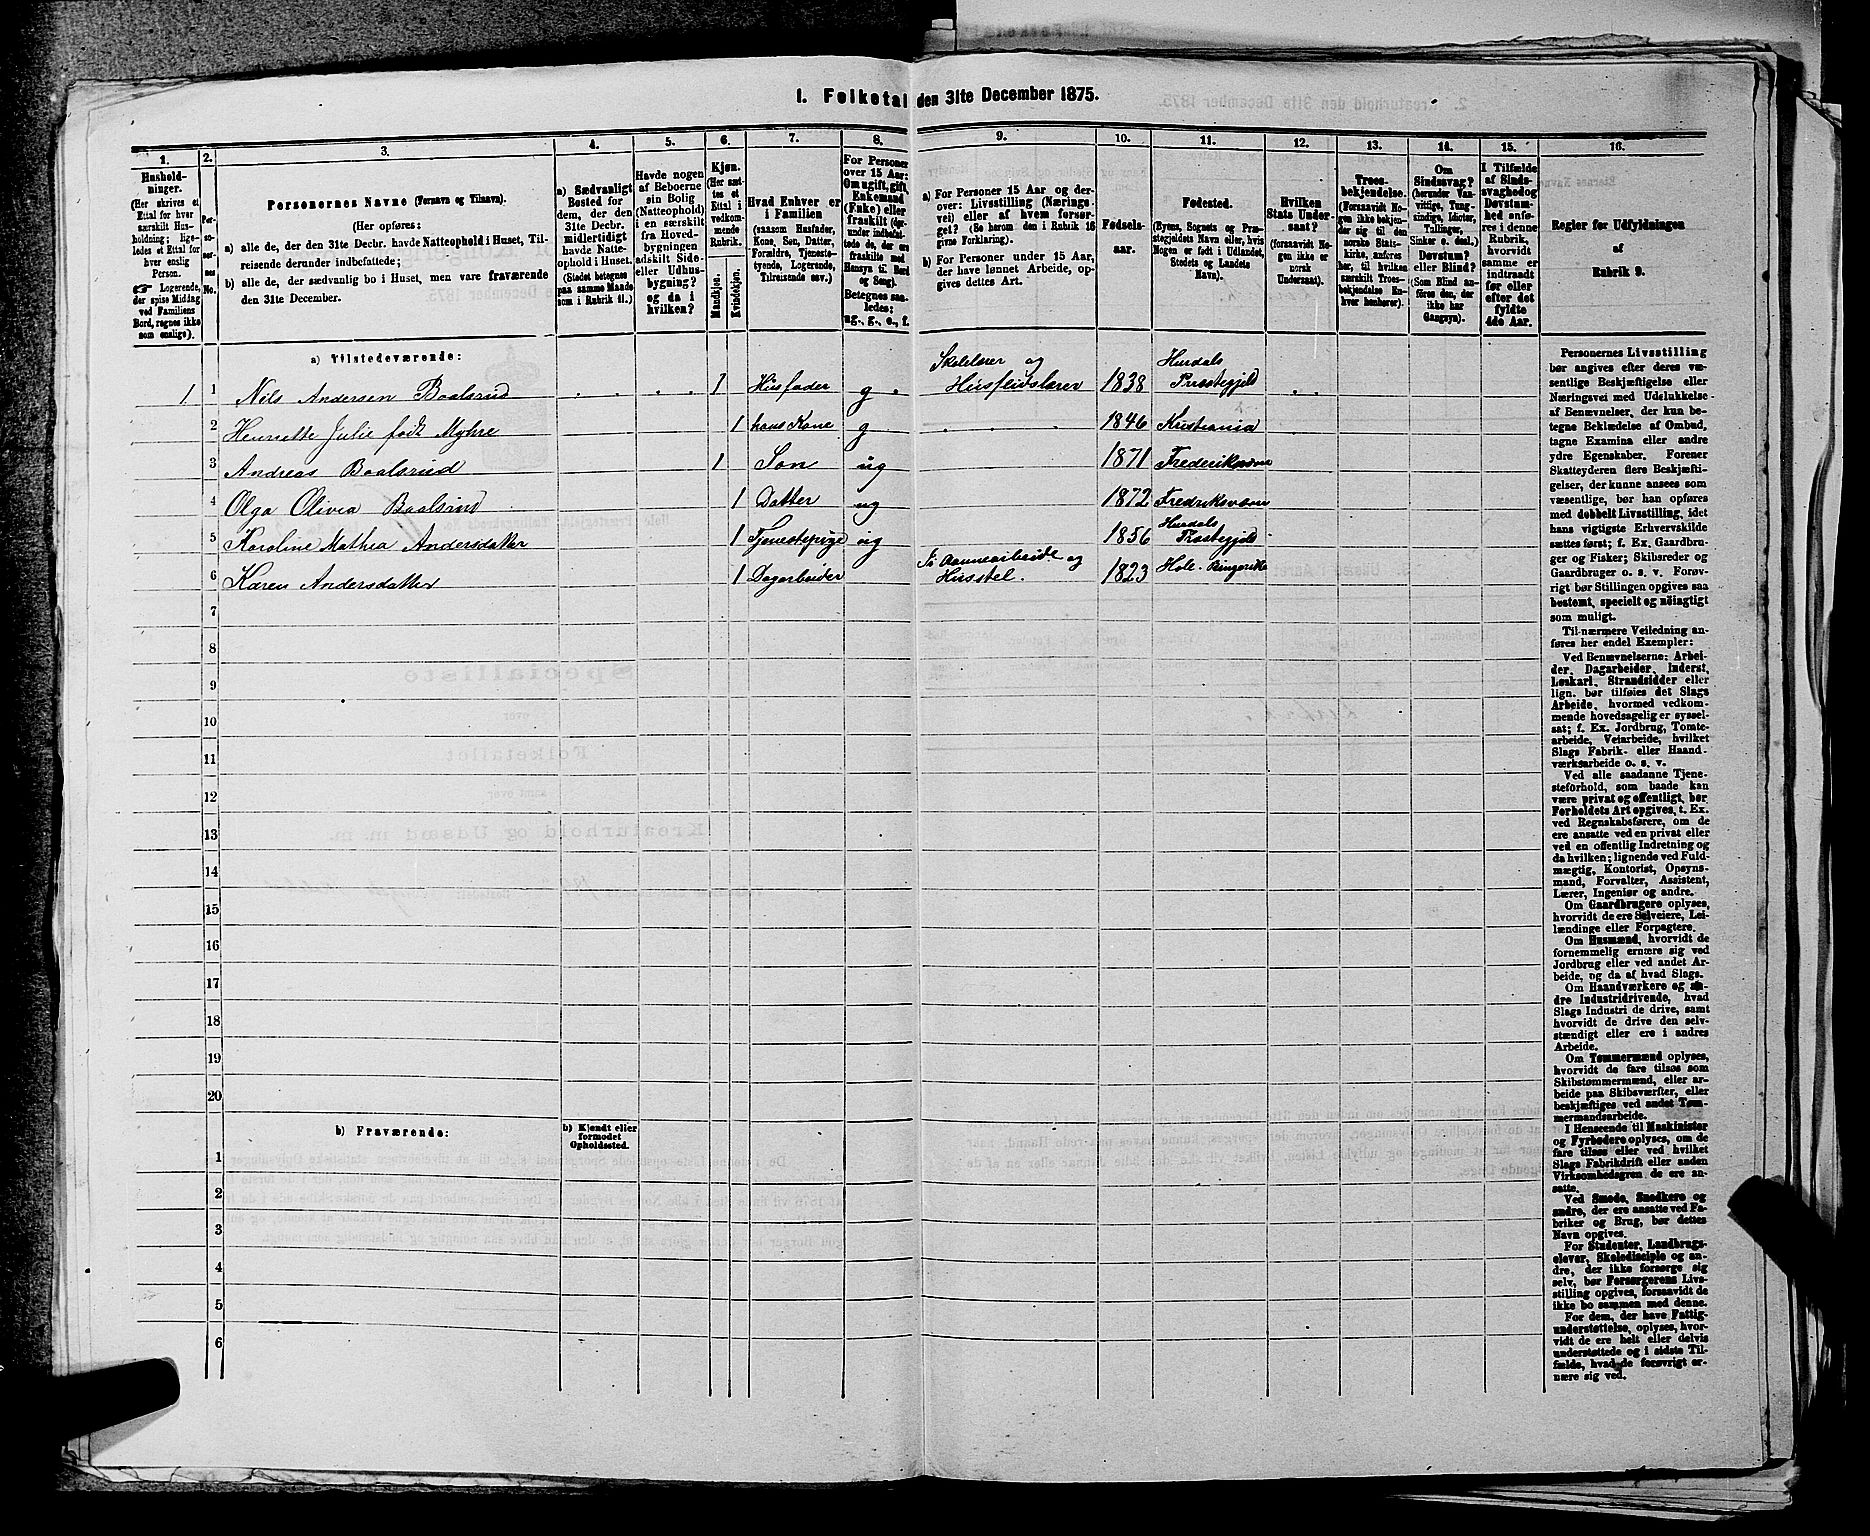 1. Folketal den 31te December 1875.
1.
Hushold-
ninger.
(Her skrives et
Ettal for hver
særskilt Hus-
holdning; lige-
ledes et Ettal for
hver enslig
Person.
☞ Logerende,
der spise Middag
ved Familiens
Bord, regnes ikke
som enslige).
2.
Per-
so-
ner-
nes
No.
3.
Personernes Navne (Fornavn og Tilnavn).
(Her opføres:
a) alle de, der den 31te Decbr. havde Natteophold i Huset, Til-
reisende derunder indbefattede;
b) alle de, der sædvanlig bo i Huset, men vare fraværende
den 31te December.
4.
a) Sædvanligt
Bosted for
dem, der den
31te Decbr.
midlertidigt
havde Natte-
ophold i Huset.
(Stedet betegnes
paa samme Maade
som i Rubrik 11.)
5.
Havde nogen
af Beboerne
sin Bolig
(Natteophold)
i en særskilt
fra Hoved-
bygningen
adskilt Side-
eller Udhus-
bygning?
og da i
hvilken?
6.
Kjøn.
(Her sæt-
tes et
Ettal i
vedkom-
mende
Rubrik.
Mandkjøn.
Kvindekjøn.
7.
Hvad Enhver er
i Familien
(saasom Husfader,
Kone, Søn, Datter,
Forældre, Tjeneste-
tyende, Logerende,
Tilreisende osv.)
8.
For Personer
over 15 Aar:
Om ugift, gift,
Enkemand
(Enke) eller
fraskilt
Betegnes saa-
ledes:
ug., g., e., f.
9.
a) For Personer 15 Aar og der-
over: Livsstilling (Nærings-
vei) eller af hvem forsør-
get? (Se herom den i Rubrik 16
givne Forklaring).
b) For Personer under 15 Aar,
der have lønnet Arbeide, op-
gives dettes Art.
10.
Fødsels-
aar.
11.
Fødested.
(Byens, Sognets og Præ-
stegjeldets Navn eller, hvis
Nogen er født i Udlandet,
Stedets og Landets
Navn).
12.
Hvilken
Stats Under-
saat?
(forsaavidt No-
gen ikke er
norsk
Undersaat).
13.
Troes-
bekjendelse.
(Forsaavidt No-
gen ikke bekjen-
der sig til den
norske Stats-
kirke, anføres
her, til hvilken
særskilt Troes-
bekjendelse En-
hver henhører).
14.
Om
Sindssvag?
(herunder Van-
vittige, Tung-
sindige, Idioter,
Tullinger,
Sinker o. desl.)
Døvstum?
eller Blind?
(Som Blind an-
føres den, der
ikke har
Gangsyn).
15.
I Tilfælde
af Sinds-
svaghed og
Døvstum-
hed anfø-
res i denne
Rubrik,
hvorvidt
samme er
indtraadt
før eller
efter det
fyldte
4de Aar.
16.
Regler for Udfyldningen
af
Rubrik 9.
a) Tilstedeværende:
1. 1 Nils Andersen Baalsrud 1 Husfader g Skolelærer og Husflidslærer 1838 Hurdals Præstegjeld
2 Henriette Julie født Myhre 1 hans Kone g 1846 Kristiania
3 Andreas Baalsrud 1 Søn ug 1871 Frederiksværn
4 Olga Olivia Baalsrud 1 Datter ug 1872 Fredriksværn
5 Karoline Mathea Andersdatter 1 Tjenestepige ug 1856 Hurdals Præstegjeld
6 Karen Andersdatter 1 Dagarbeider og Husstel. 1823 Hole Ringerike
7
8
9
10
11
12
13
14
15
16
17
18
19
20
b) Fraværende:
b) Kjendt eller
formodet
Opholdssted.
1
2
3
4
5
6
Personernes Livsstilling
bør angives efter deres væ-
sentlige Beskjæftigelse eller
Næringsvei med Udelukkelse
af Benævnelser, der kun be-
tegne Beklædelse af Ombud,
tagne Examina eller andre
ydre Egenskaber. Forener
Skatteyderen flere Beskjæfti-
gelser, der kunne ansees som
væsentlige, bør han opføres
med dobbelt Livsstilling, idet
hans vigtigste Erhvervskilde
sættes først; f. Ex. Gaardbru-
ger og Fisker; Skibsreder og
Gaardbruger o. s. v. Forøv-
rigt bør Stillingen opgives saa
bestemt, specielt og nöiagtigt
som muligt.
Til nærmere Veiledning an-
føres her endel Exempler:
Ved Benævnelserne: Arbei-
der, Dagarbeider, Inderst,
Løskarl, Strandsidder eller
lign. bør tilføies det Slags
Arbeide, hvormed vedkom-
mende hovedsagelig er syssel-
sat; f. Ex. Jordbrug, Tomte-
arbeide, Veiarbeide, hvilket
Slags Fabrik- eller Haand-
værksarbeide o. s. v.
Ved alle saadanne Tjene-
steforhold, som baade kan
være privat og offentligt, bør
Forholdets Art opgives, t. Ex.
ved Regnskabsførere, om de
ere ansatte ved en privat eller
ved en offentlig Indretning og
da hvilken; lignende ved Fuld-
mægtig, Kontorist, Opsyns-
mand, Forvalter, Assistent,
Lærer, Ingeniør og andre.
Om Gaardbrugere oplyses,
hvorvidt de ere Selveiere, Lei-
lændinge eller Forpagtere.
Om Husmænd, hvorvidt de
fornemmelig ernære sig ved
Jordbrug eller ved andet Ar-
beide, og da af hvad Slags.
Om Haandværkere og an-
dre Industridrivende, hvad
Slags Industri de drive, samt
hvorvidt de drive den selv-
stændigt eller ere i andres
Arbeide.
Om Tømmermænd oplyses,
hvorvidt de fare tilsøs som
Skibstømmermænd, eller ar-
beide paa Skibsværfter, eller
beskjæftiges ved andet Tøm-
mermandsarbeide.
I Henseende til Maskinister
og Fyrbødere oplyses, om de
fare tilsøs eller ved hvilket
Slags Fabrikdrift eller anden
Virksomhedsgren de ere an-
satte.
Ved Smede, Snedkere og
andre, der ere ansatte ved Fa-
briker og Brug, bør dettes
Navn opgives.
For Studenter, Landbrugs-
elever, Skoledisciple og an-
dre, der ikke forsørge sig
selv, bør Forsørgerens Livs-
stilling opgives, forsaavidt de
ikke bo sammen med denne.
For dem, der have Fattig-
understøttelse, oplyses, hvor-
vidt de ere helt eller delvis
understøttede og i sidste Til-
fælde, hvad de forøvrigt er-
nære sig ved.